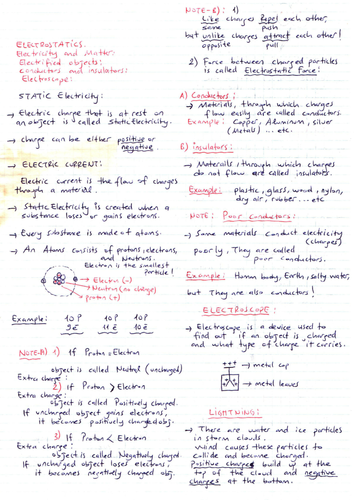 ELECTROSTATICS.
Electricity and Matter:
Electrified objects:
conductors and insulators:
Electroscope:
STATIC Electricity:
→ Electric charge that is at rest on
an object is called Static Electricity.
→ charge can be either positive or
negative
→ ELECTRIC CURRENT:
Electric current is the flow of charges
through a material.
→ Static Electricity is created when a
substance loses or gains electrons.
→ Every substance is made of atoms.
→ An Atoms consists of protons, electrons,
and Neutrons.
Electron is the smallest
Particle!
→ Electron (-)
→ Neutron (no charge)
→ proton (+)
Example: 10 P 10 P 10 P
9 ē 11 ē 10 ē
NOTE-A) 1) If Proton = Electron
object is called Neutral (uncharged)
Extra charge:
2) If Proton > Electron
Extra charge:
object is called Positively charged.
If uncharged object gains electrons,
it becomes positively charged obj.
3) If Proton < Electron
Extra charge:
object is called Negatively charged
If uncharged object loses electrons,
it becomes negatively charged obj.
NOTE-B): 1)
Like charges Repel each other,
same push
but unlike charges attract each other!
opposite pull
2) Force between charged particles
is called Electrostatic Force!
A) Conductors:
→ Materials, through which charges
flow easily are called conductors.
Example: Copper, Aluminum, silver
(Metals) ... etc.
B) insulators:
→ Materials through which charges
do not flow are called insulators.
Example: plastic, glass, wood, nylon,
dry air, rubber ... etc
NOTE: Poor conductors:
→ Some materials conduct electricity
(charges)
poorly, They are called
poor conductors.
Example: Human body, Earth, salty water,
but They are also conductors!
ELECTROSCOPE:
→ Electroscope is a device used to
find out if an object is charged
and what type of charge it carries.
+++ → metal cap
→ metal leaves
LIGHTNING:
→ There are water and ice particles
in storm clouds.
Wind causes these particles to
collide and become charged.
Positive charges build up at the
top of the cloud and negative
charges at the bottom.